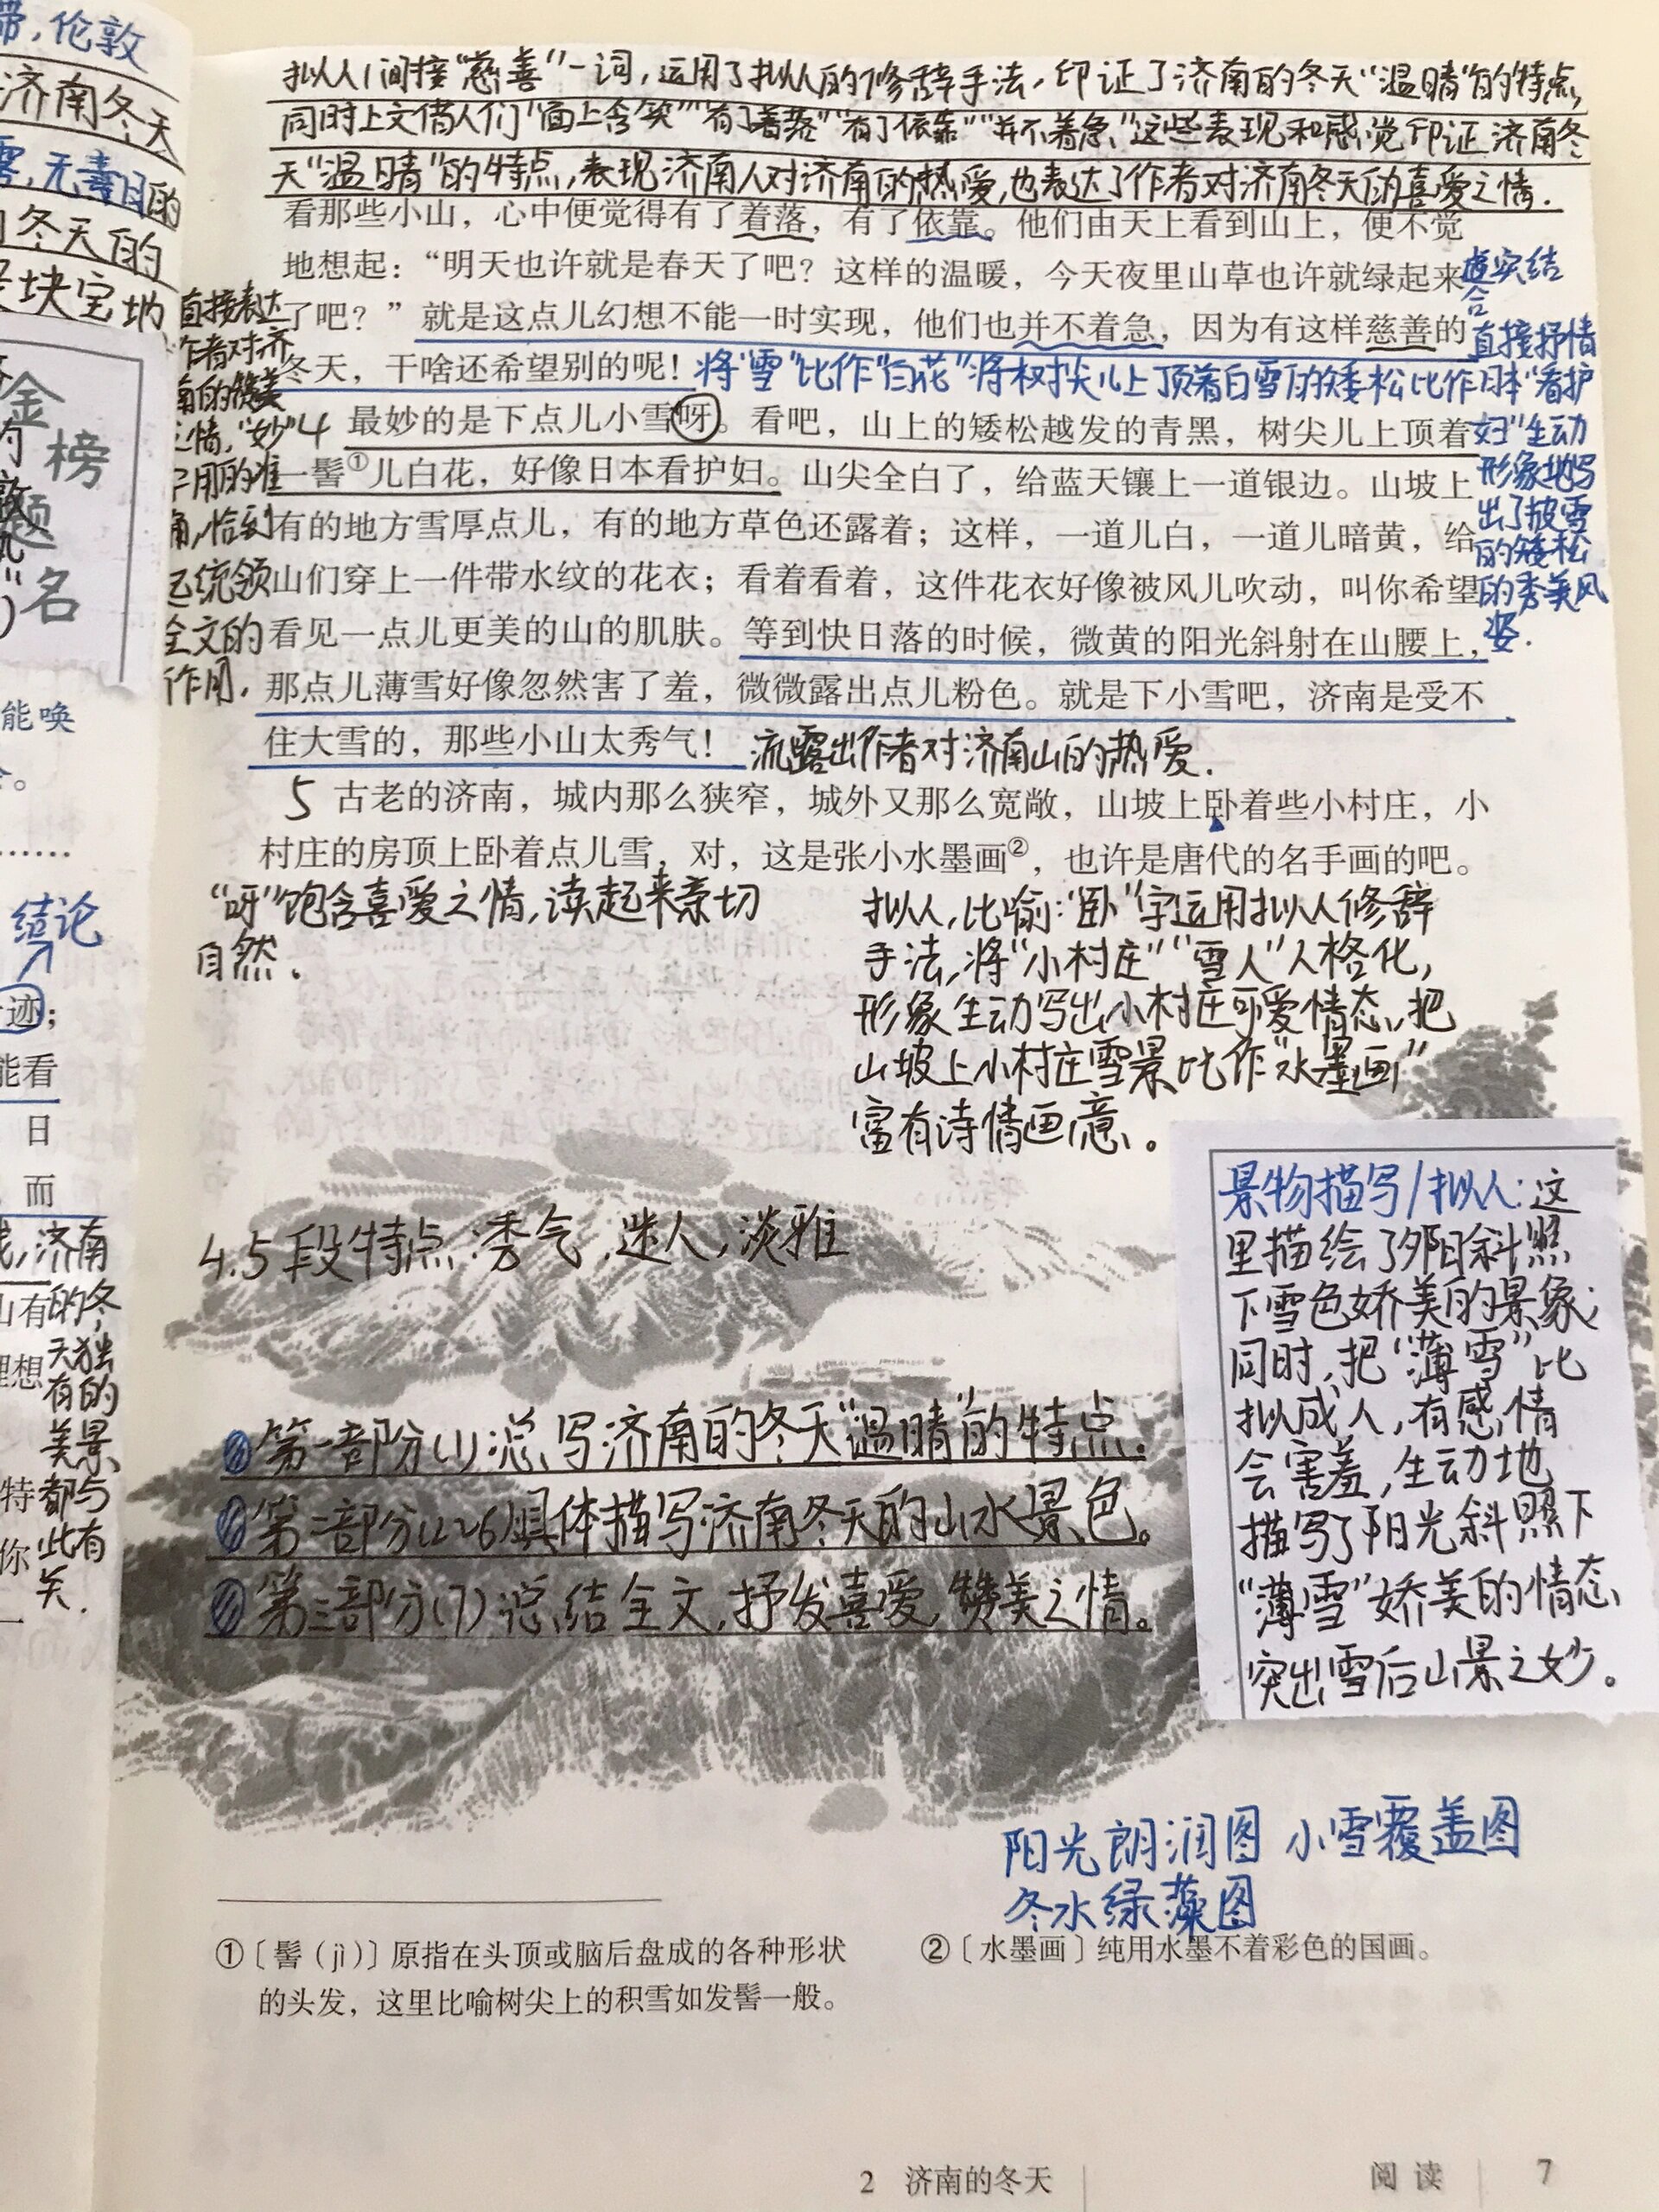 帶,伦敦
济南冬天
雾,无毒日的
冬天的
块宝地
金榜题名
能唤
。
……
结论
迹;
能看
日
而
济南
山有的冬
天独
理想有的
美景
特都与
你此有
关.
拟人/间接“慈善”一词,运用了拟人的修辞手法,印证了济南的冬天“温晴”的特点,
同时上文借人们“面上含笑”“有了着落”“有了依靠”“并不着急”这些表现和感觉印证济南冬
天“温晴”的特点,表现济南人对济南的热爱,也表达了作者对济南冬天的喜爱之情.
看那些小山，心中便觉得有了着落，有了依靠。他们由天上看到山上，便不觉
地想起：“明天也许就是春天了吧？这样的温暖，今天夜里山草也许就绿起来
了吧？”就是这点儿幻想不能一时实现，他们也并不着急，因为有这样慈善的
冬天，干啥还希望别的呢！
虚实结
合
直接抒情
将“雪”比作“白花”将树尖儿上顶着白雪的矮松比作日本“看护
妇”生动
形象地写
出了披雪
的矮松
的秀美风
姿.
直接表达
作者对济
南的赞美
之情,“妙”
字用的准
确,恰到
统领
全文的
作用.
4 最妙的是下点儿小雪呀。看吧，山上的矮松越发的青黑，树尖儿上顶着
一髻①儿白花，好像日本看护妇。山尖全白了，给蓝天镶上一道银边。山坡上，
有的地方雪厚点儿，有的地方草色还露着；这样，一道儿白，一道儿暗黄，给
山们穿上一件带水纹的花衣；看着看着，这件花衣好像被风儿吹动，叫你希望
看见一点儿更美的山的肌肤。等到快日落的时候，微黄的阳光斜射在山腰上，
那点儿薄雪好像忽然害了羞，微微露出点儿粉色。就是下小雪吧，济南是受不
住大雪的，那些小山太秀气！
流露出作者对济南山的热爱.
5 古老的济南，城内那么狭窄，城外又那么宽敞，山坡上卧着些小村庄，小
村庄的房顶上卧着点儿雪，对，这是张小水墨画②，也许是唐代的名手画的吧。
“呀”饱含喜爱之情,读起来亲切
自然.
拟人,比喻:“卧”字运用拟人修辞
手法,将“小村庄”“雪人”人格化,
形象生动写出小村庄可爱情态,把
山坡上小村庄雪景比作“水墨画”
富有诗情画意。
4.5段特点:秀气,迷人,淡雅
第一部分(1)总写济南的冬天“温晴”的特点.
第二部分(2~6)具体描写济南冬天的山水景色。
第三部分(7)总结全文,抒发喜爱,赞美之情。
景物描写/拟人:这
里描绘了夕阳斜照
下雪色娇美的景象;
同时,把“薄雪”比
拟成人,有感情
会害羞,生动地
描写了阳光斜照下
“薄雪”娇美的情态,
突出雪后山景之妙。
阳光朗润图 小雪覆盖图
冬水绿藻图
①〔髻（jì）〕原指在头顶或脑后盘成的各种形状
的头发，这里比喻树尖上的积雪如发髻一般。
②〔水墨画〕纯用水墨不着彩色的国画。
2 济南的冬天
阅读 7